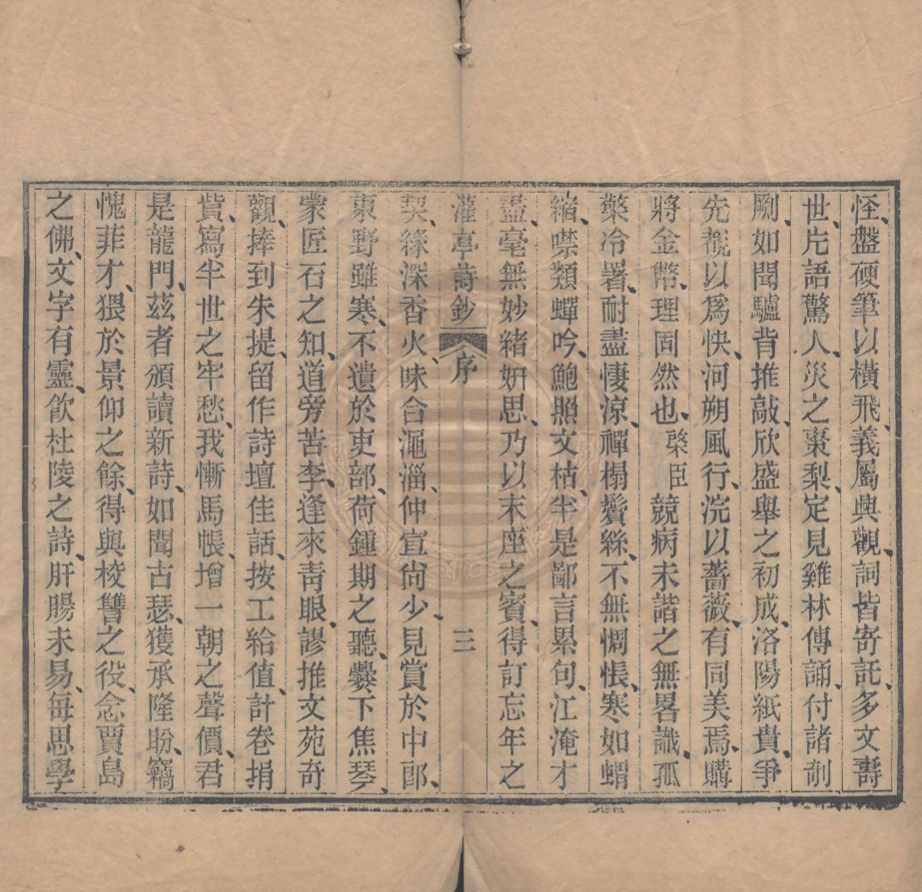 怪盤硬筆以橫飛義屬興觀詞皆寄託多文壽
世片語驚人災之棗梨定見雞林傳誦付諸剞
劂如聞驢背推敲欣盛舉之初成洛陽紙貴爭
先覩以爲快河朔風行浣以薔薇有同美焉購
將金幣理固然也棨臣競病未諧之無畧識孤
檠冷署耐盡悽涼禪榻鬢絲不無惆悵寒如蝟
縮噤類蟬吟鮑照文枯半是鄙言累句江淹才
盡毫無妙緒妍思乃以末座之賓得訂忘年之
灌亭詩鈔 序 三
契緣深香火味合澠淄仲宣尙少見賞於中郎
東野雖寒不遺於吏部荷鍾期之聽爨下焦琴
蒙匠石之知道旁苦李逢來靑眼謬推文苑奇
觀捧到朱提留作詩壇佳話按工給值計卷捐
貲寫半世之牢愁我慚馬帳增一朝之聲價君
是龍門茲者頒讀新詩如聞古瑟獲承隆盼竊
愧菲才猥於景仰之餘得與校讐之役念賈島
之佛文字有靈飮杜陵之詩肝腸未易每思學